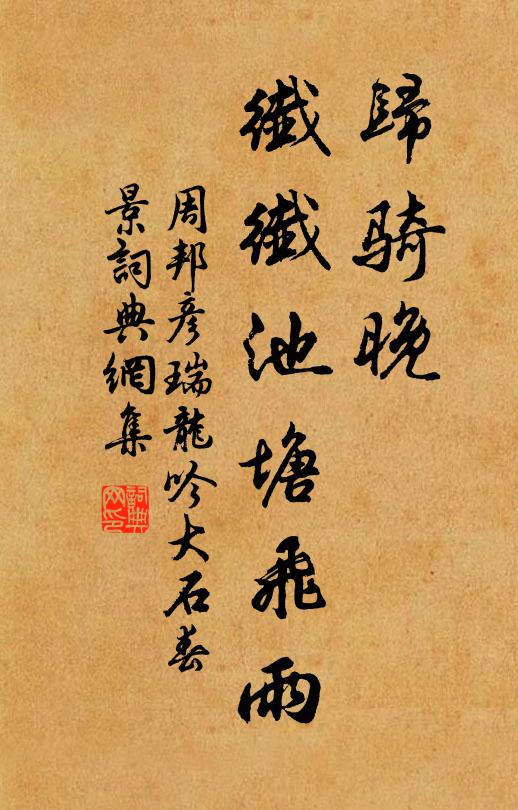 歸騎晚
纖纖池塘飛雨
周邦彦瑞龍吟大石春
景詞典網集
詞典
网印